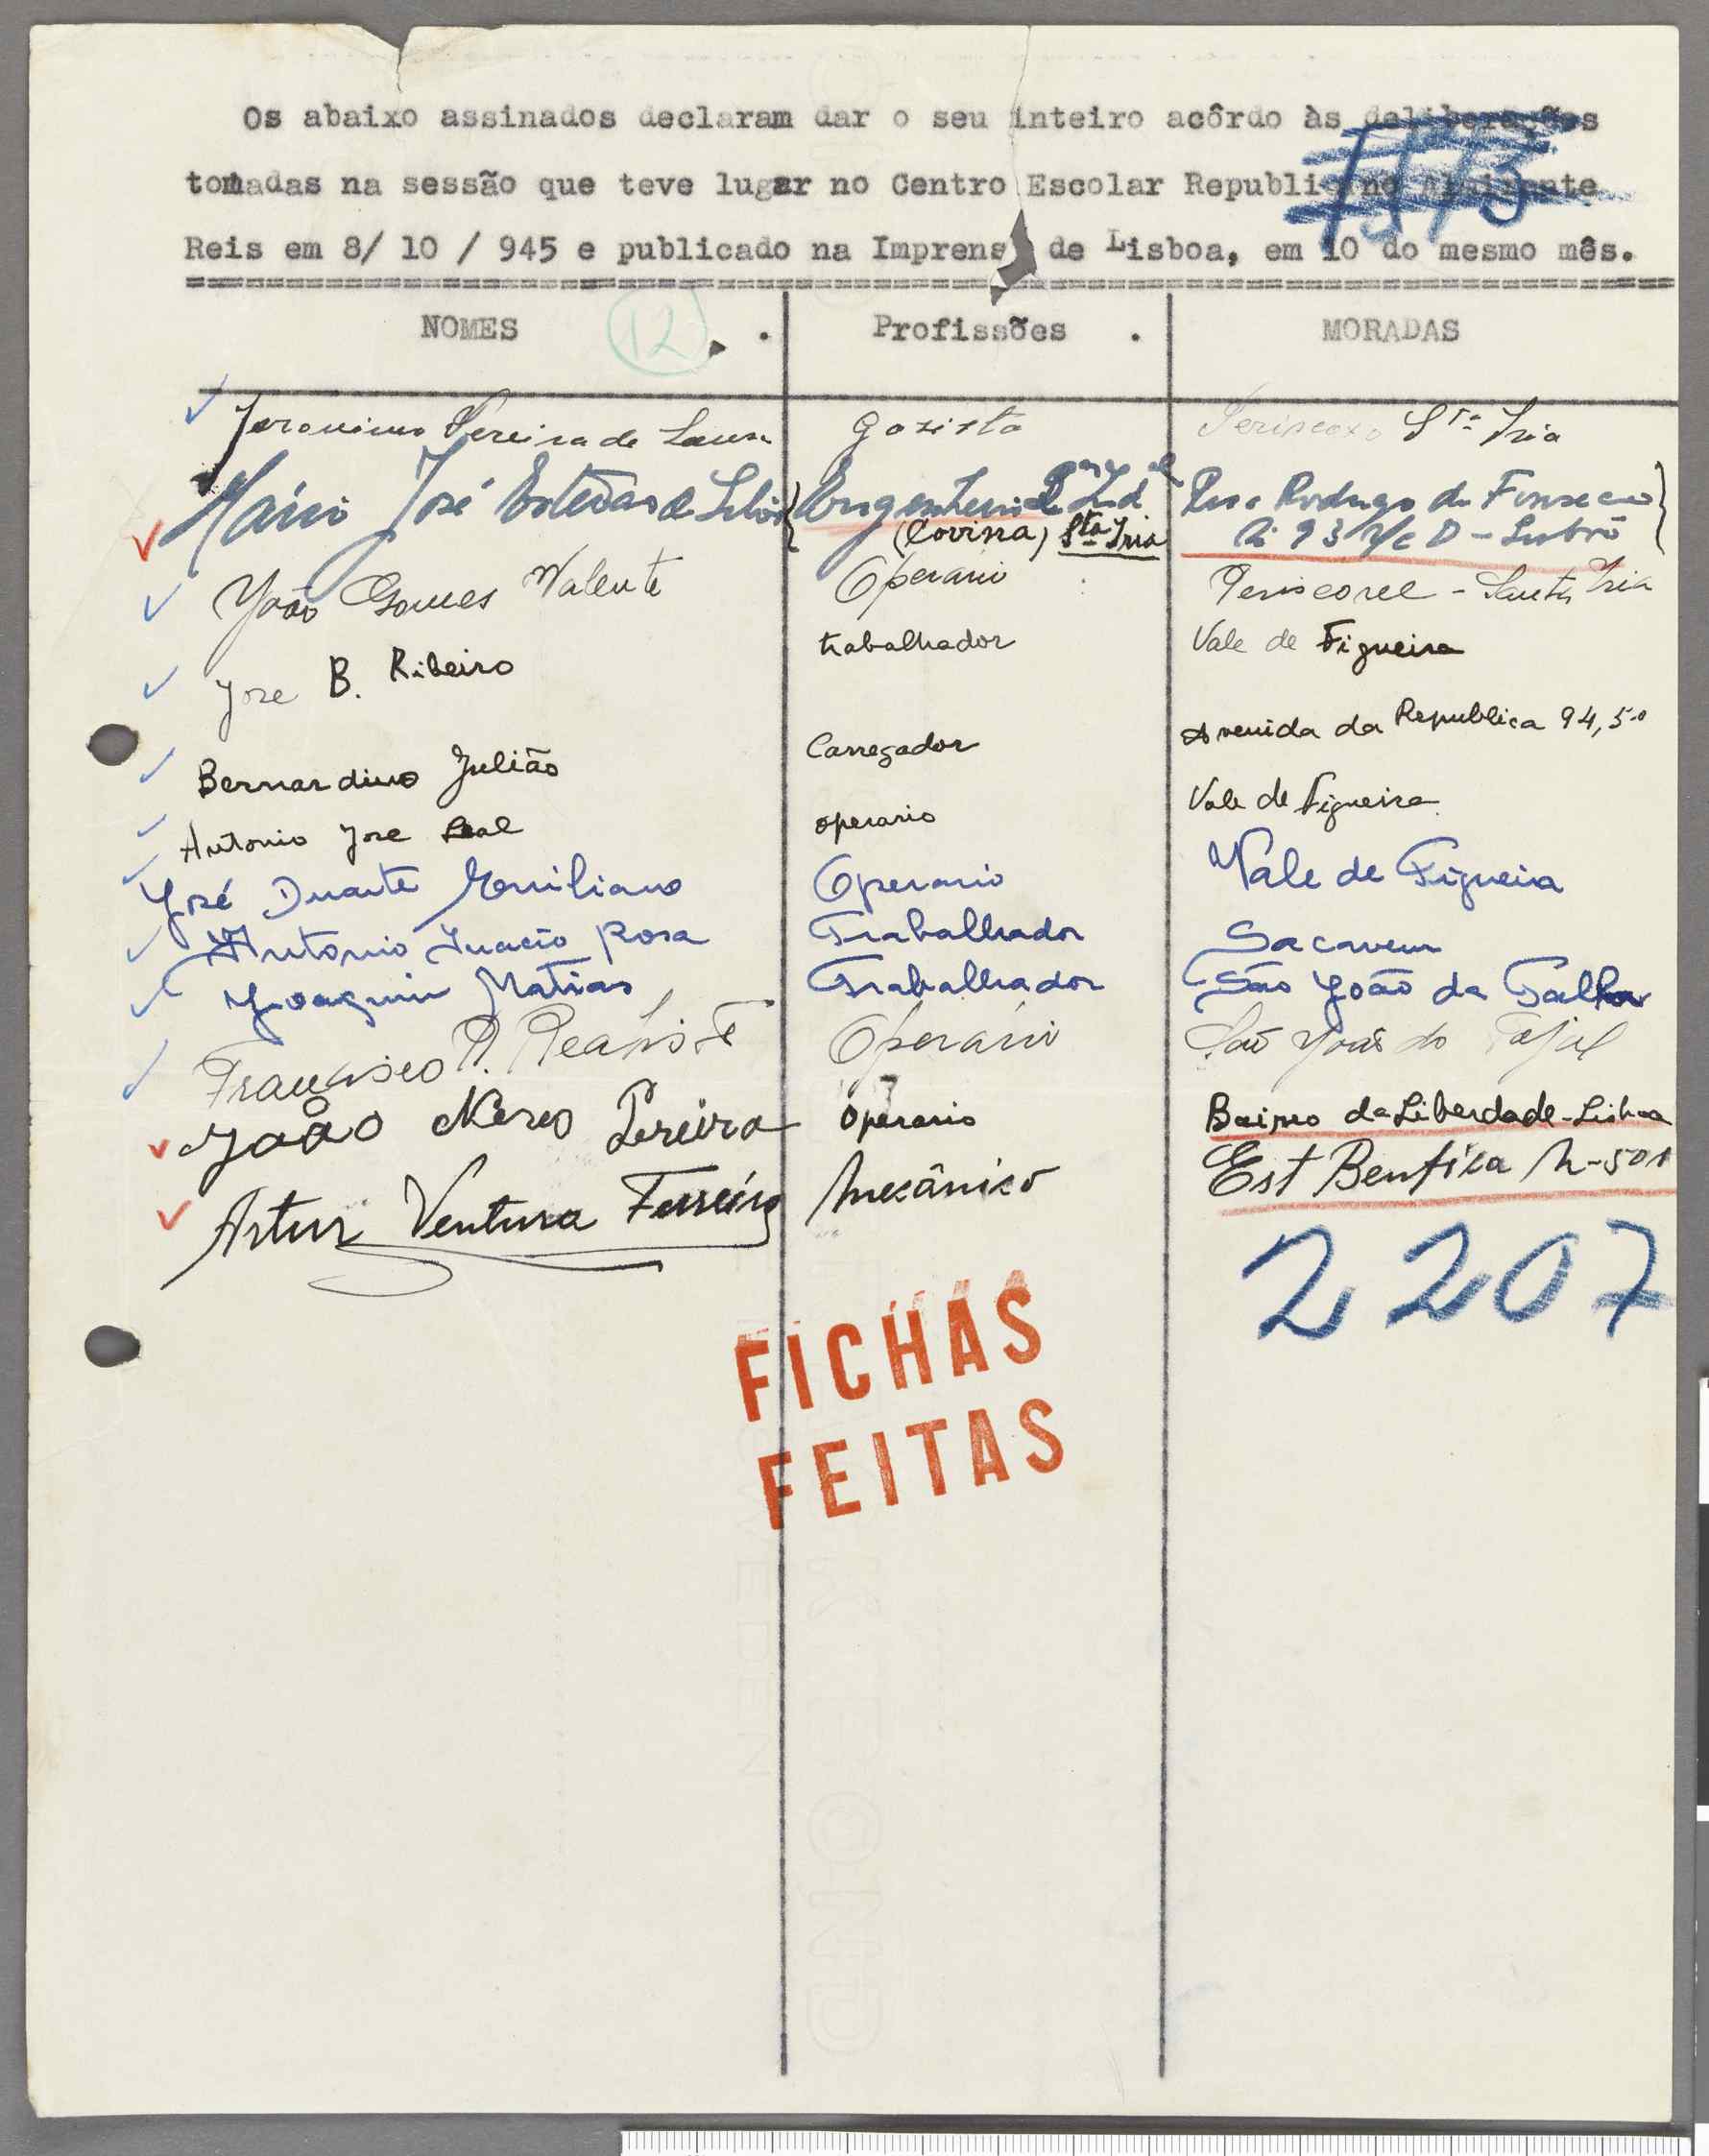 Os abaixo assinados declaram dar o seu inteiro acôrdo às deliberações
1573
tomadas na sessão que teve lugar no Centro Escolar Republicano Almirante
Reis em 8/ 10 / 945 e publicado na Imprensa de Lisboa, em 10 do mesmo mês.
NOMES 12 . Profissões . MORADAS
Jeronimo Pereira de gazista Stª Iria
Mário José Esteves de Engenheiro Rua Rodrigo da Fonseca
(Covina) Sta Iria 93 r/c D - Lisboa
João Gomes Valente Operario - Santa Iria
Jose B. Ribeiro trabalhador Vale de Figueira
Bernardino Julião Carregador Avenida da Republica 94, 5º
Antonio Jose Leal operario Vale de Figueira
José Duarte Emiliano Operario Vale de Figueira
Antonio Inacio Rosa Trabalhador Sacavem
Joaquim Matias Trabalhador São João da Talha
Francisco Operário São João do Tojal
João Nereo Pereira Operario Bairro da Liberdade - Lisboa
Artur Ventura Ferreira Mecânico Est Benfica N-501
2207
FICHAS
FEITAS